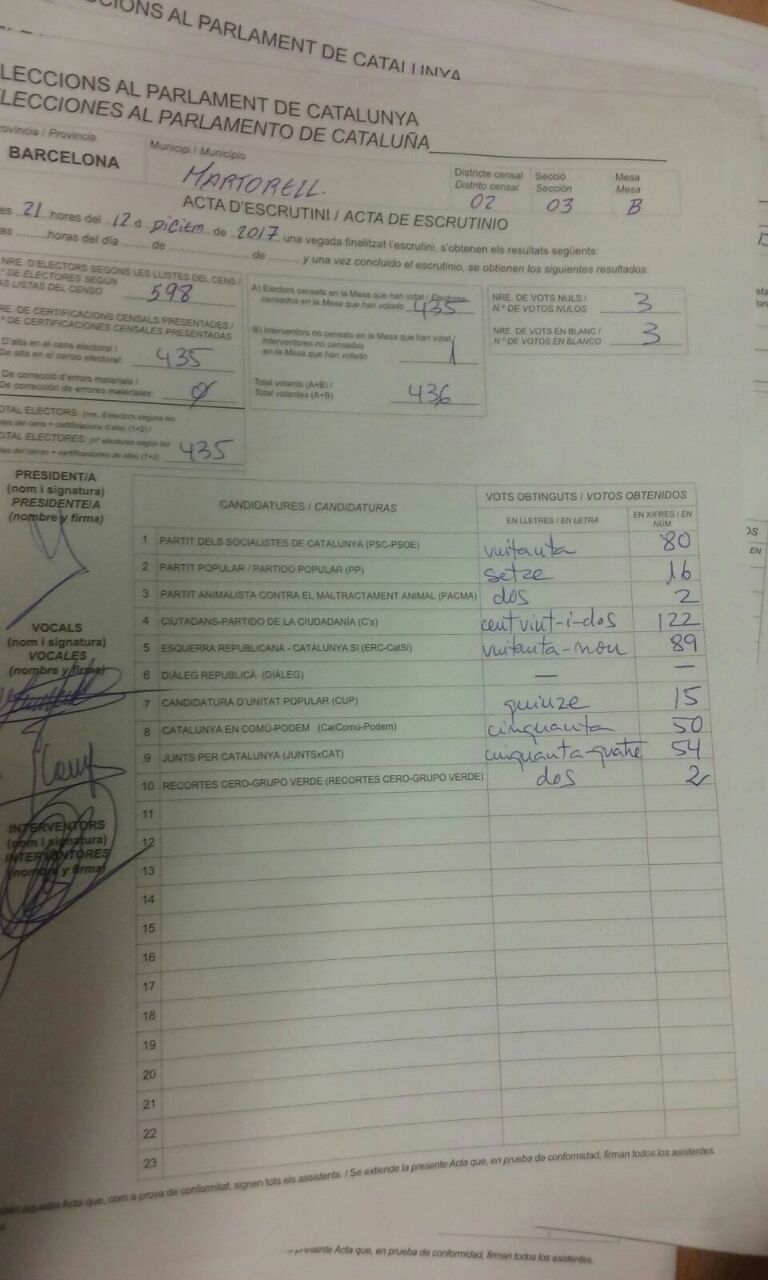 CIONS AL PARLAMENT DE CATALUNYA
LECCIONS AL PARLAMENT DE CATALUNYA
LECCIONES AL PARLAMENTO DE CATALUÑA
rovíncia / Provincia
BARCELONA
Municipi / Municipio
MARTORELL.
Districte censal
Distrito censal
02
Secció
Sección
03
Mesa
Mesa
B
ACTA D'ESCRUTINI / ACTA DE ESCRUTINIO
es 21 hores del 12 d DICIEM de 2017 una vegada finalitzat l'escrutini, s'obtenen els resultats següents:
as ......... horas del día ...... de ............ de ...... y una vez concluido el escrutinio, se obtienen los siguientes resultados:
NRE. D'ELECTORS SEGONS LES LLISTES DEL CENS /
º DE ELECTORES SEGÚN
AS LISTAS DEL CENSO
598
RE. DE CERTIFICACIONS CENSALS PRESENTADES /
º DE CERTIFICACIONES CENSALES PRESENTADAS
D'alta en el cens electoral /
De alta en el censo electoral:
435
De correcció d'errors materials /
De corrección de errores materiales:
0
OTAL ELECTORS: (nre. d'electors segons les
es del cens + certificacions d'alta) (1+2) /
OTAL ELECTORES: (nº electores según las
tas del censo + certificaciones de alta) (1+2)
435
A) Electors censats en la Mesa que han votat / Electores
censados en la Mesa que han votado
435
B) Interventors no censats en la Mesa que han votat /
Interventores no censados
en la Mesa que han votado
1
Total votants (A+B) /
Total votantes (A+B)
436
NRE. DE VOTS NULS /
N.º DE VOTOS NULOS
3
NRE. DE VOTS EN BLANC /
N.º DE VOTOS EN BLANCO
3
PRESIDENT/A
(nom i signatura)
PRESIDENTE/A
(nombre y firma)
VOCALS
(nom i signatura)
VOCALES
(nombre y firma)
INTERVENTORS
(nom i signatura)
INTERVENTORES
(nombre y firma)
CANDIDATURES / CANDIDATURAS
VOTS OBTINGUTS / VOTOS OBTENIDOS
EN LLETRES / EN LETRA
EN XIFRES / EN NÚM
1 PARTIT DELS SOCIALISTES DE CATALUNYA (PSC-PSOE) vuitanta 80
2 PARTIT POPULAR / PARTIDO POPULAR (PP) setze 16
3 PARTIT ANIMALISTA CONTRA EL MALTRACTAMENT ANIMAL (PACMA) dos 2
4 CIUTADANS-PARTIDO DE LA CIUDADANÍA (C's) cent vint-i-dos 122
5 ESQUERRA REPUBLICANA - CATALUNYA SÍ (ERC-CatSí) vuitanta-nou 89
6 DIÀLEG REPUBLICÀ (DIÀLEG) — —
7 CANDIDATURA D'UNITAT POPULAR (CUP) quinze 15
8 CATALUNYA EN COMÚ-PODEM (CatComú-Podem) cinquanta 50
9 JUNTS PER CATALUNYA (JUNTSxCAT) cinquanta-quatre 54
10 RECORTES CERO-GRUPO VERDE (RECORTES CERO-GRUPO VERDE) dos 2
11
12
13
14
15
16
17
18
19
20
21
22
23
aquesta Acta que, com a prova de conformitat, signen tots els assistents. / Se extiende la presente Acta que, en prueba de conformidad, firman todos los asistentes.
presente Acta que, en prueba de conformidad, firman todos los asistentes.